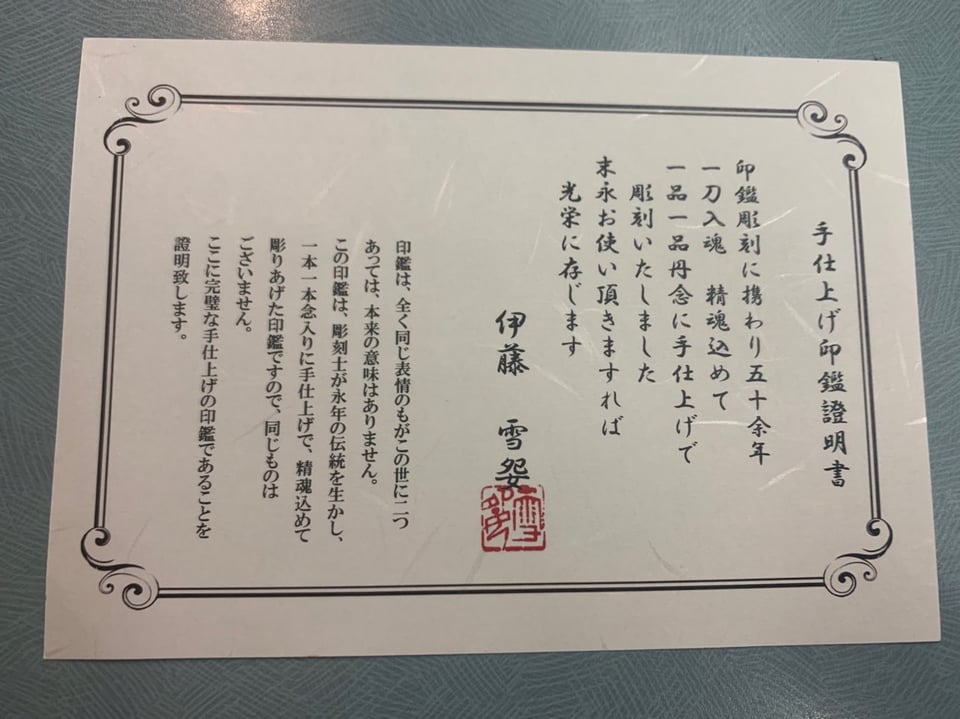 手仕上げ印鑑證明書
印鑑彫刻に携わり五十余年
一刀入魂 精魂込めて
一品一品丹念に手仕上げで
彫刻いたしました
末永お使い頂きますれば
光栄に存じます
伊藤 雪
印鑑は、全く同じ表情のものがこの世に二つ
あっては、本来の意味はありません。
この印鑑は、彫刻士が永年の伝統を生かし、
一本一本念入りに手仕上げで、精魂込めて
彫りあげた印鑑ですので、同じものは
ございません。
ここに完璧な手仕上げの印鑑であることを
證明致します。